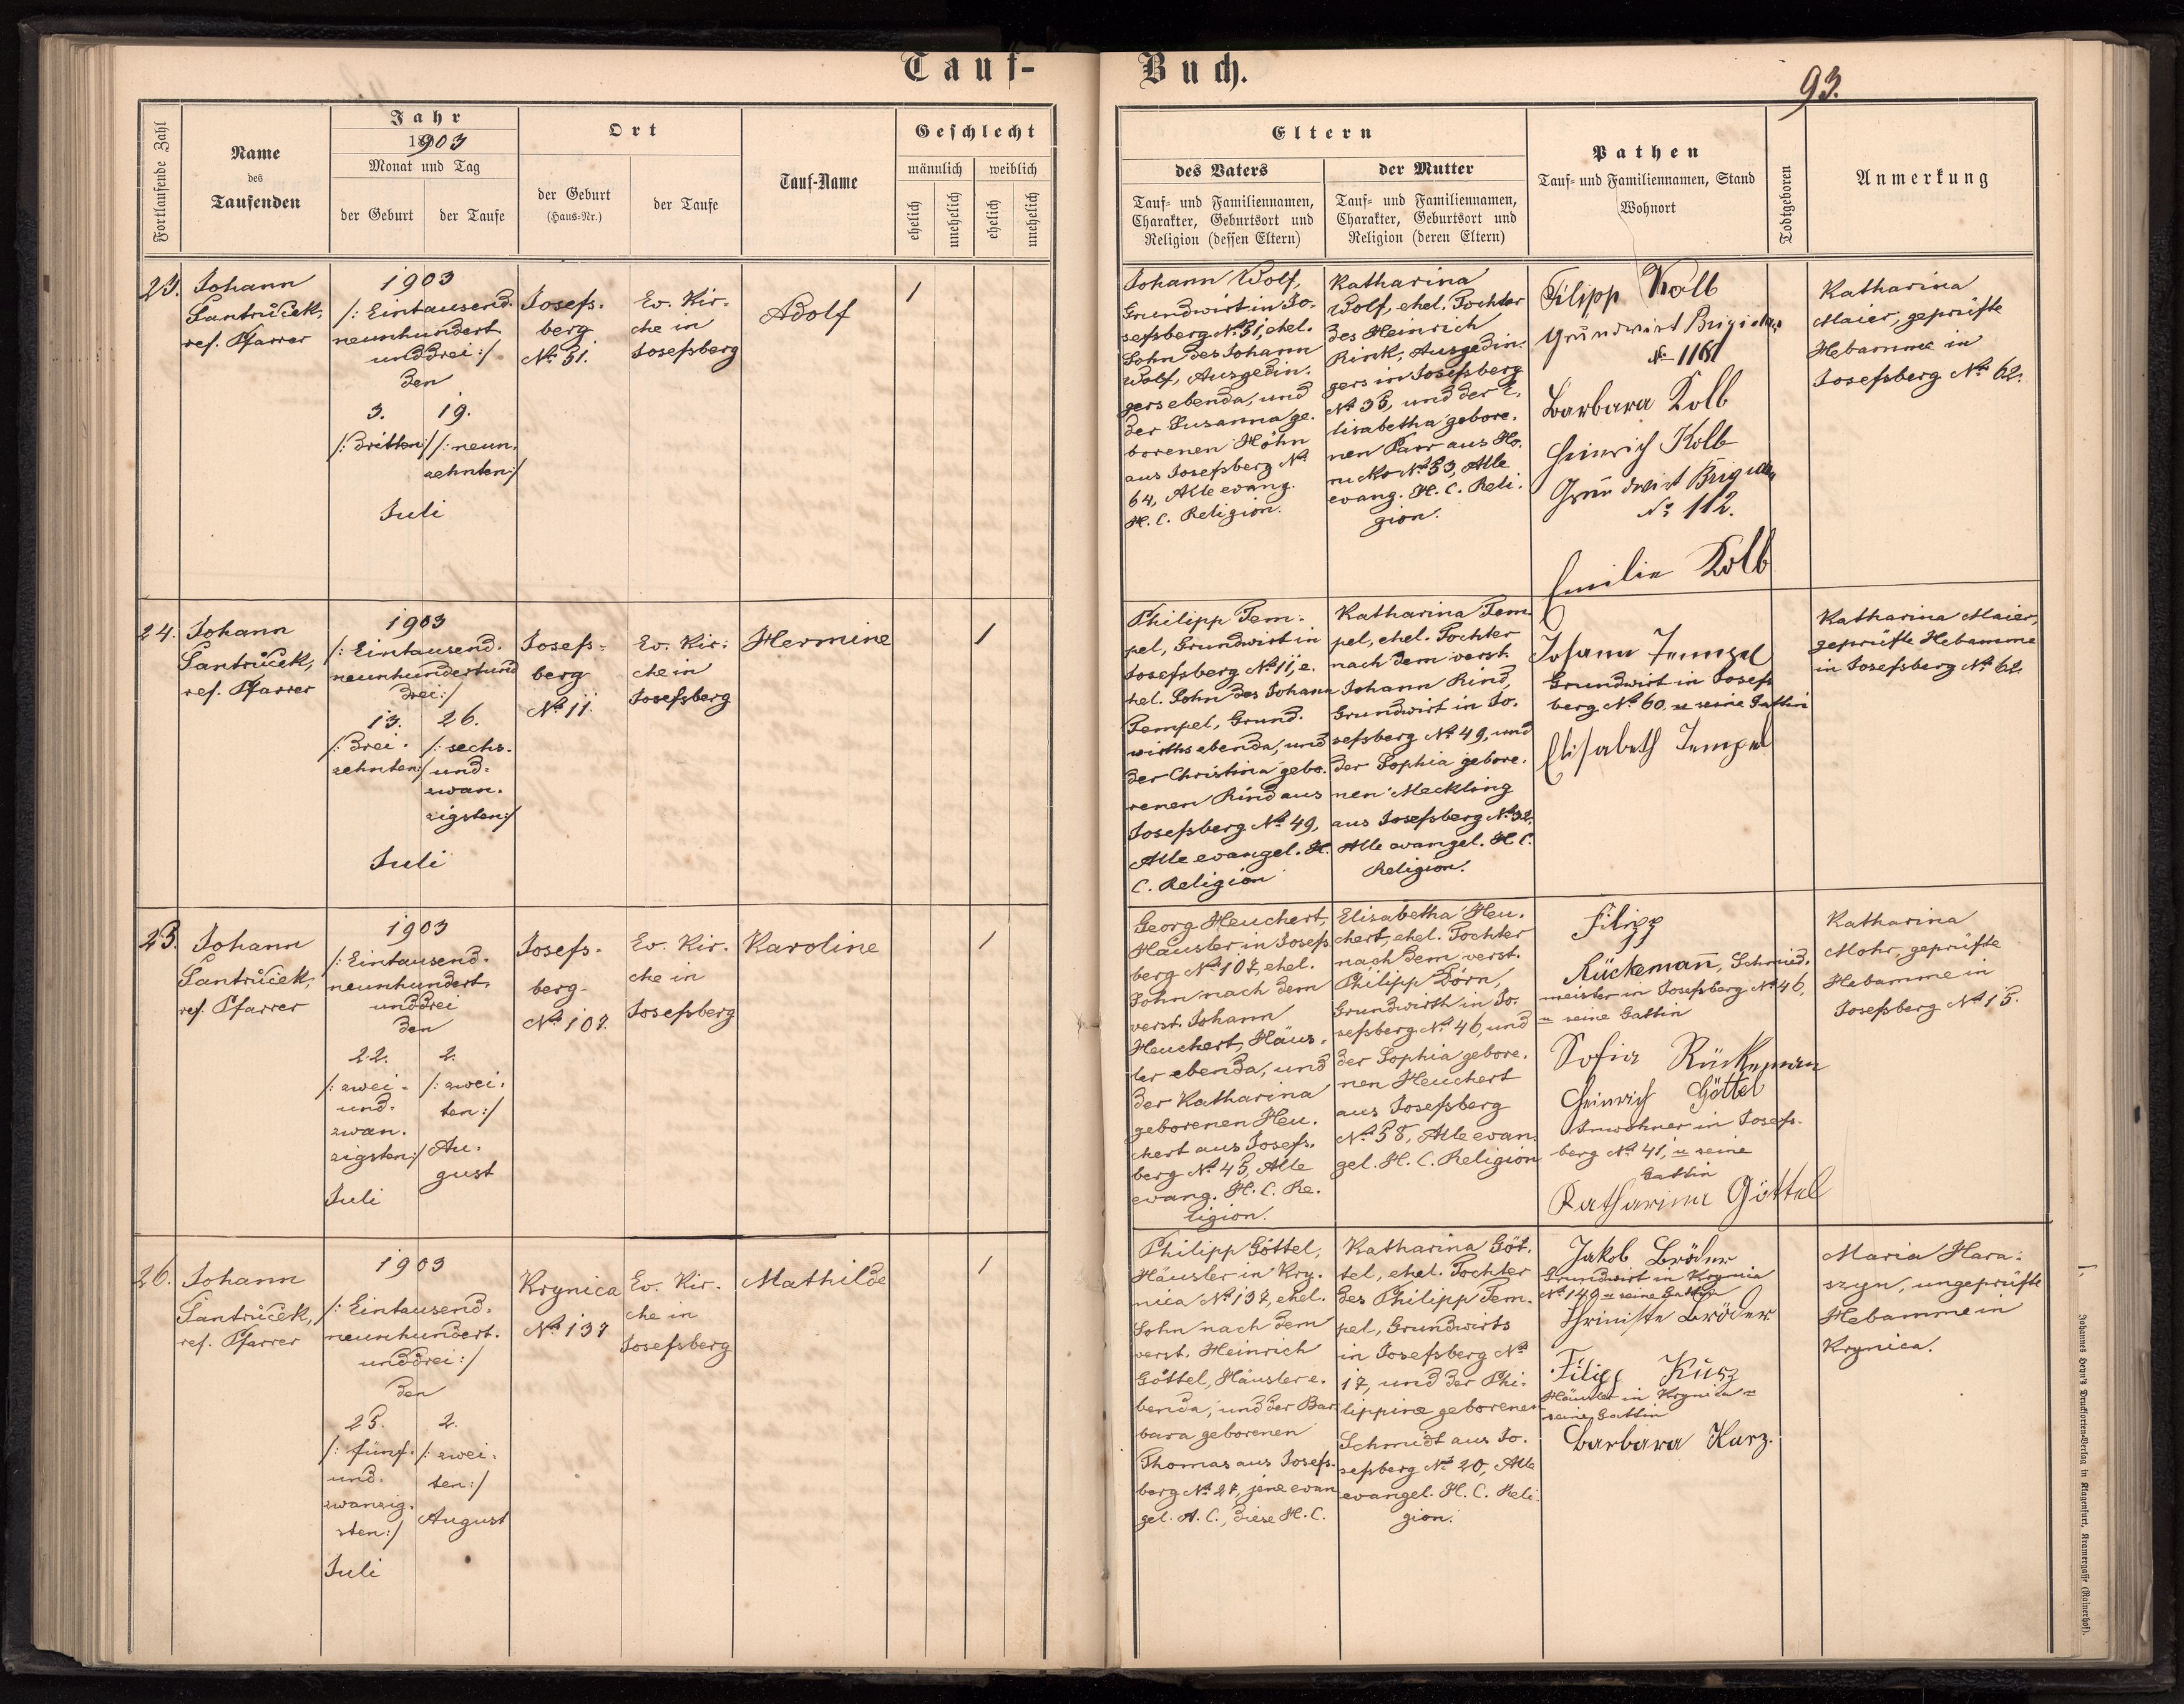 Tauf-Buch.
93.
Fortlaufende Zahl
Name
des
Taufenden
Jahr
1903
Monat und Tag
der Geburt
der Taufe
Ort
der Geburt
(Haus-Nr.)
der Taufe
Tauf-Name
Geschlecht
männlich
weiblich
ehelich
unehelich
ehelich
unehelich
Eltern
des Vaters
Tauf- und Familiennamen,
Charakter, Geburtsort und
Religion (dessen Eltern)
der Mutter
Tauf- und Familiennamen,
Charakter, Geburtsort und
Religion (deren Eltern)
Pathen
Tauf- und Familiennamen, Stand
Wohnort
Todtgeboren
Anmerkung
23.
Johann
Šantrůček,
ref. Pfarrer
1903
/: Eintausend-
neunhundert-
unddrei :/
den
3.
/: dritten :/
19.
/: neun-
zehnten :/
Juli
Josefs-
berg
No. 51.
Ev. Kir-
che in
Josefsberg
Adolf
1
Johann Wolf,
Grundwirt in Jo-
sefsberg No 51, ehel.
Sohn des Johann
Wolf, Ausgedin-
gers ebenda, und
der Susanna ge-
borenen Höhn
aus Josefsberg No
64, Alle evang.
H. C. Religion.
Katharina
Wolf, ehel. Tochter
des Heinrich
Rink, Ausgedin-
gers in Josefsberg
No 35, und der E-
lisabetha gebore-
nen Parr aus Ho-
rucko No 53, Alle
evang. H. C. Reli-
gion.
Filipp Kolb
Grundwirt Brigidau
Barbara Kolb
Heinrich Kolb
Grundwirt Brigidau
No 112.
Emilie Kolb
Katharina
Maier, geprüfte
Hebamme in
Josefsberg No 62.
24.
Johann
Šantrůček,
ref. Pfarrer
1903
/: Eintausend-
neunhundertund
drei :/
13.
/: drei-
zehnten :/
26.
/: sechs-
und-
zwan-
zigsten :/
Juli
Josefs-
berg
No 11.
Ev. Kir-
che in
Josefsberg
Hermine
1
Philipp Tem-
pel, Grundwirt in
Josefsberg No 11, e-
hel. Sohn des Johann
Tempel, Grund-
wirths ebenda, und
der Christina gebo-
renen Rind aus
Josefsberg No 49,
Alle evangel. H.
C. Religion
Katharina Tem-
pel, ehel. Tochter
nach dem verst.
Johann Rind,
Grundwirt in Jo-
sefsberg No 49, und
der Sophia gebore-
nen Meckling
aus Josefsberg No 32.
Alle evangel. H. C.
Religion.
Johann Tempel
Grundwirt in Josefs
berg No 60. u seine Gattin
Elisabeth Tempel
Katharina Maier,
geprüfte Hebamme
in Josefsberg No 62.
25.
Johann
Šantrůček,
ref. Pfarrer
1903
/: Eintausend-
neunhundert-
unddrei
den
22.
/: zwei-
und-
zwan-
zigsten :/
Juli
2.
/: zwei-
ten :/
Au-
gust
Josefs-
berg-
No 107.
Ev. Kir-
che in
Josefsberg
Karoline
1
Georg Heuchert,
Häusler in Josefs
berg No 107, ehel.
Sohn nach dem
verst. Johann
Heuchert, Häus-
ler ebenda, und
der Katharina
geborenen Heu-
chert aus Josefs-
berg No 45, Alle
evang. H. C. Re-
ligion.
Elisabetha Heu-
chert, ehel. Tochter
nach dem verst.
Philipp Dörn,
Grundwirth in Jo-
sefsberg No 46, und
der Sophia gebore-
nen Heuchert
aus Josefsberg
No 58, Alle evan-
gel. H. C. Religion
Filipp
Rückemañ, Schmied-
meister in Josefsberg No 46,
u seine Gattin
Sofia Rückeman
Heinrich Göttel
Inwohner in Josefs-
berg No 41, u seine
Gattin
Katharina Göttel
Katharina
Mohr, geprüfte
Hebamme in
Josefsberg No 15.
26.
Johann
Šantrůček,
ref. Pfarrer
1903
/: Eintausend-
neunhundert-
unddrei :/
den
25.
/: fünf-
und-
zwanzig-
sten :/
Juli
2.
/: zwei-
ten :/
August
Krynica
No 137
Ev. Kir-
che in
Josefsberg
Mathilde
1
Philipp Göttel,
Häusler in Kry-
nica No 137, ehel.
Sohn nach dem
verst. Heinrich
Göttel, Häusler e-
benda, und der Bar-
bara geborenen
Thomas aus Josefs-
berg No 27, jene evan
gel. A. C., diese H. C.
Katharina Göt-
tel, ehel. Tochter
des Philipp Tem-
pel, Grundwirts
in Josefsberg No
17, und der Phi-
lippine geborenen
Schmidt aus Jo-
sefsberg No 20, Alle
evangel. H. C. Reli-
gion.
Jakob Bröder
Grundwirt in Krynica
No 149 u seine Gattin
Bröder
Filipp Kurz
Häusler in Krynica u
seine Gattin
Barbara Kurz.
Maria Hara-
szyn, ungeprüfte
Hebamme in
Krynica.
Johannes Heyn's Drucksorten-Verlag in Klagenfurt, Kramergasse (Rainerhof).